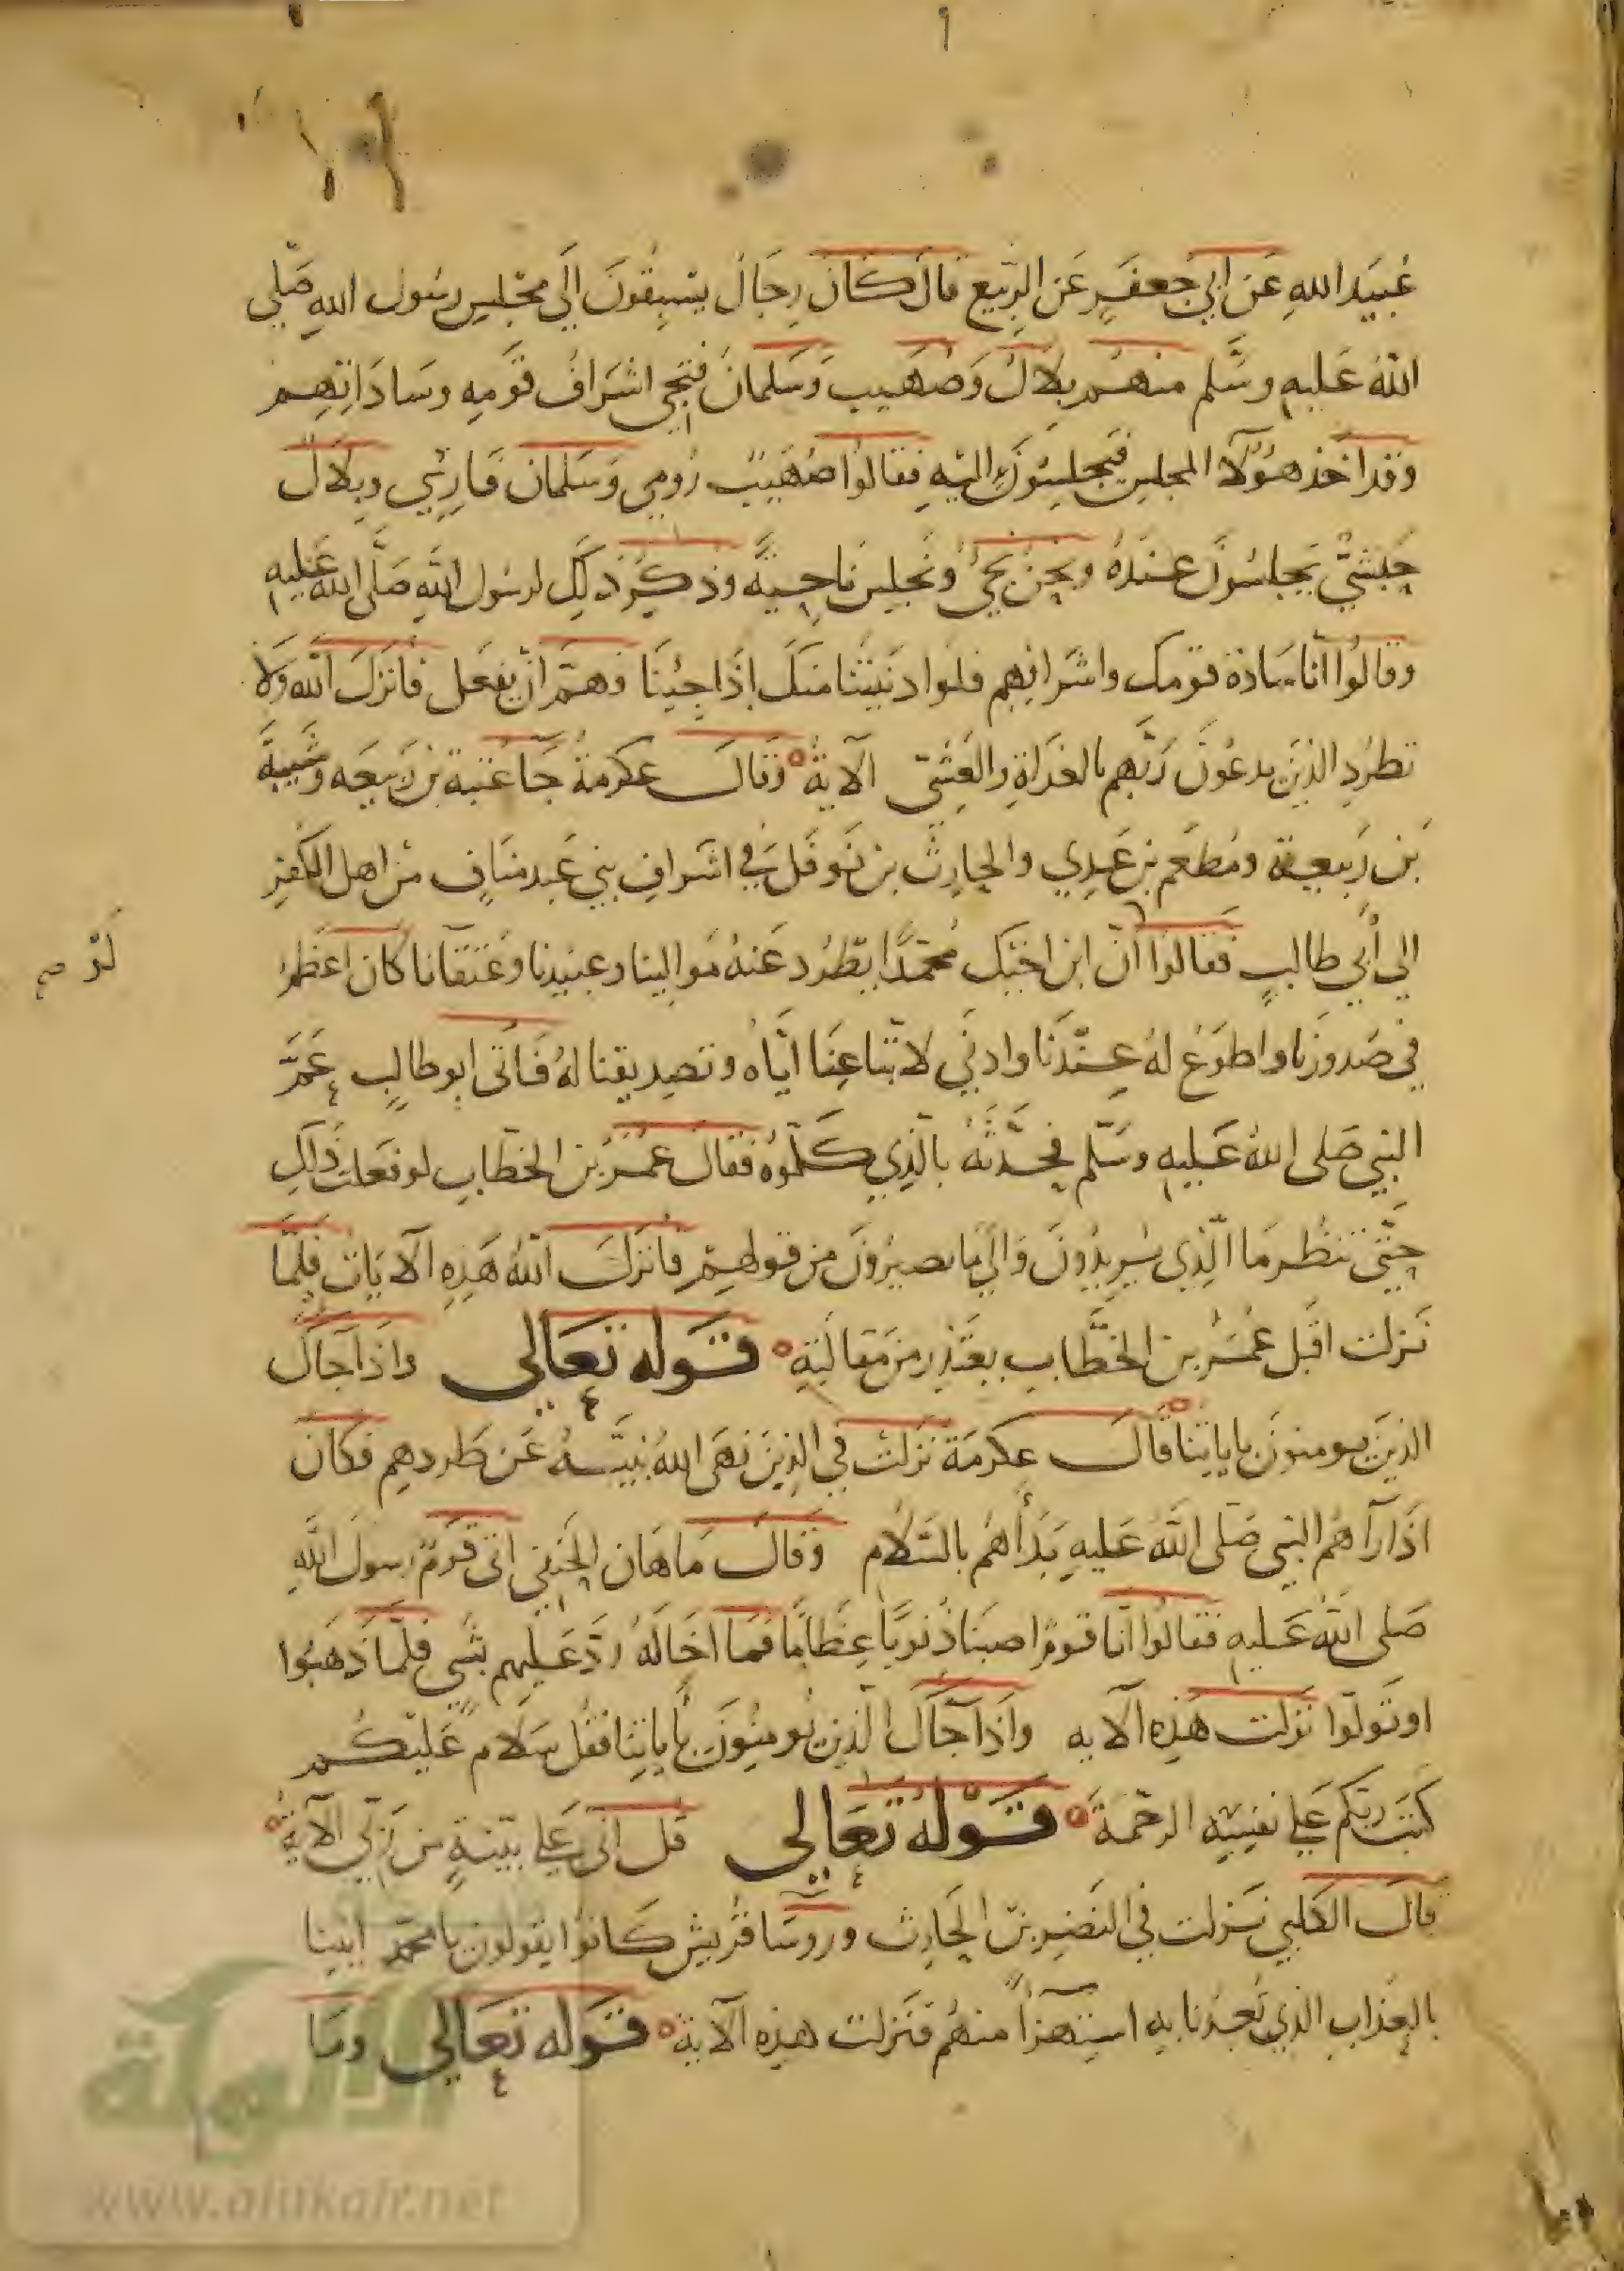 عُبَيد اللهِ عَن ابي جُعفَرٍ عَن الرّبيع قال كَان رِجَالٌ يَسْبِقُونَ الَي مجْلِسِ رسُول اللهِ صَلي
اللهُ عَليهِ وسَّلم منهُم بِلالٌ وَصُهَيب وَسَلمانُ فيَجي اشرَافُ قَومِه وسَادَاتِهم
وَقد اخذ هؤُلآ المجلِس فيَجلِسُونَ اليهِ فقالوُا صُهَيبٌ رُومِي وَسَلمان فارِسِي وبِلالٌ
حَبَشيٌّ يَجلسُونَ عندَهُ ونحن نجيُ ونَجلِسُ ناحِيةً وذكِرُ ذلِك لرسُول اللهِ صَلَّى اللهُ عَليهِ
وقالُوا انّا سَادَة قومك واشرافِهم فلوا دنيتنا منكَ اِذا جِئنَا فهمّ انْ يفعَل فانزلَ الله وَلا
تطرُدِ الذينَ يدعُونَ رَبَّهم بالغدَاةِ والعَشِيّ الآيةُ ٥ وَقال عكرمةُ جَآ عُتبة بن رَبيعَه وشَيبةُ
بَن رَبيعة ومُطعَم بن عَدِي والحارِثُ بن نَوفَل في اشرافِ بني عَبد منَافٍ منْ اهل الكُفرِ
الي أبي طالبٍ فقالوا انّ ابن اخيَك مُحمّدًا يطرُد عَنهُ مَوالينا وعبيدنا وعُتقآنا كان اعظم
في صَدورنا واطوَع لهُ عِندَنا وادني لاتّباعِنَا ايّاهُ وتصديقنا لهُ فَأتى ابو طالِبٍ عَمَّ
النبي صَلى اللهُ عَليهِ وسَلّم فحَدّثهُ بالّذِي كلّموُهُ فقال عُمَرُ بن الخطّابِ لو فعَلت ذَلِك
حَتّى تنظُر مَا الّذِي يُرِيدُونَ وَالَي مَا يصيرُونَ من قولهِمْ فانزلَ اللهُ هَذِهِ الآيَات فَلمّا
نَزلت اقبل عُمَرُ بن الخطَّاب يعتذِر من مقالَتِهِ ٥ قَوله تعَالى وَاذَا جَاك
الذينَ يومنونَ باياتِنا قالَ عِكرمَة نَزلَت في الذِينَ نهَى اللهُ نبيَّهُ عَن طَردهِم فكان
اذَا رآهُم النبي صَلى اللهُ عَليهِ بَدأهُم بالسَلام وَقال مَاهَان الحَنفي اتى قومٌ رسولَ اللهِ
صَلى اللهُ عَليهِ فقالوُا انّا قومٌ اصبَنا ذُنوبًا عِظامًا فمَا اخَالهُ رَدّ عَليهم بشي فلمّا ذهَبُوا
اوتَولّوا نزلت هذِهِ الآيه وَاذَا جَاكَ الّذين يُومِنُونَ بأياتِنا فقُل سَلامٌ عَليْكُم
كتبَ ربّكم عَلي نفسِهِ الرحمَةَ ٥ قَولهُ تعَالى قل اني عَلي بيّنةٍ من رَبّي الآيةُ ٥
قالَ الكلبي نزلت في النضِر بن الحارِث وروسَا قُريش كَانوُا يقولون يا محمد ايتِنا
بالعذابِ الذي تَعِدُنا بهِ استهزاً منهُم فنَزلت هذِه الآيةُ ٥ قَوله تعَالي ومَا
www.alukah.net
الألوكة